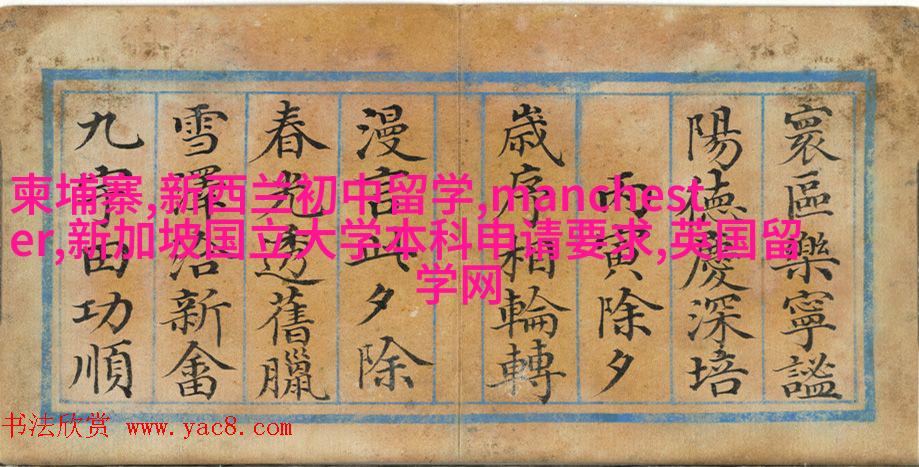 寰區樂寧謐
陽德慶深培
丙寅除夕
歳序相輪轉
漫言此夕除
春光透舊臘
雪澤給新畬
九宇田功順
柬埔寨,新西兰初中留学,manchest
er,新加坡国立大学本科申请要求,英国留
学网
书法欣赏 www.yac8.com